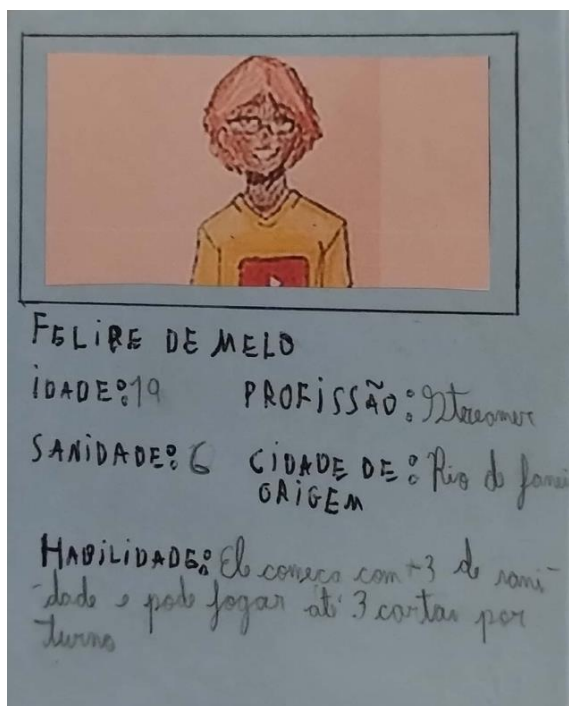 FELIPE DE MELO
IDADE: 19 PROFISSÃO: Streamer
SANIDADE: 6 CIDADE DE ORIGEM: Rio de Janei
HABILIDADE: Ele começa com +3 de sani-
dade e pode jogar até 3 cartas por
turno